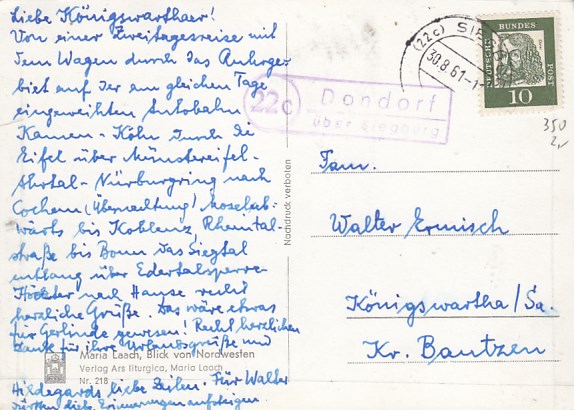 Liebe Königswarthaer!
Von einer Zweitagesreise mit
dem Wagen durch das Ruhrge-
biet auf der am gleichen Tage
eingeweihten Autobahn
Kamen - Köln durch die
Eifel über Münstereifel-
Ahrtal - Nürburgring nach
Cochem (Übernachtung) moselab-
wärts bis Koblenz Rheintal-
straße bis Bonn das Siegtal
entlang über Edertalsperre-
Höxter nach Hause recht
herzliche Grüße. Das wäre etwas
für Gerlinde gewesen! Recht herzlichen
Dank für ihre Urlaubsgrüße und
Hildegards liebe Zeilen. Für Walter
liebe Erinnerungen aufsteigen
Maria Laach, Blick von Nordwesten
Verlag Ars liturgica, Maria Laach
Nr. 218
Nachdruck verboten
22c
Dondorf
über Siegburg
(22c) SIEGBURG
30.8.61
DEUTSCHE BUNDESPOST
10
350
2,-
Fam.
Walter Ermisch
Königswartha/Sa.
Kr. Bautzen